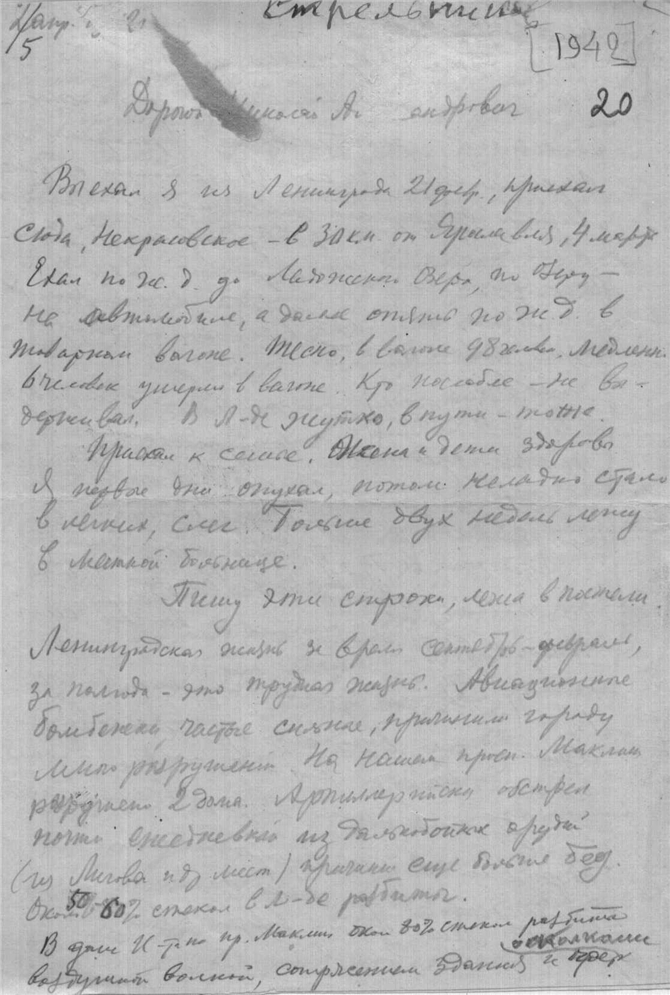 [1942]
5
20
Дорогой Николай Александрович
Выехал я из Ленинграда 21 февр., приехал
сюда, Некрасовское – в 30 км от Ярославля, 4 марта
Ехал по ж. д. до Ладожского Озера, по Озеру –
на автомобиле, а далее опять по ж д. в
товарном вагоне. Тесно, в вагоне 98 человек. Медленно.
6 человек умерли в вагоне. Кто послабее – не вы-
держивал. В Л-де жутко, в пути – тоже.
Приехал к семье. Жена и дети здоровы
Я первые дни опухал, потом неладно стало
в легких, слег. Больше двух недель лежу
в местной больнице.
Пишу эти строки, лежа в постели.
Ленинградская жизнь за время сентябрь–февраль,
за полгода – это трудная жизнь. Авиационные
бомбежки, частые сильные, причинили городу
много разрушений. На нашем просп. Маклина
разрушено 2 дома. Артиллерийский обстрел
почти ежедневный из дальнобойных орудий
(из Лигова и др мест) причинил еще больше бед.
Около 50 60% стекол в Л-де разбиты.
В доме И-та на пр. Маклина окол 80% стекол разбито
воздушной волной, сотрясением здания и осколками